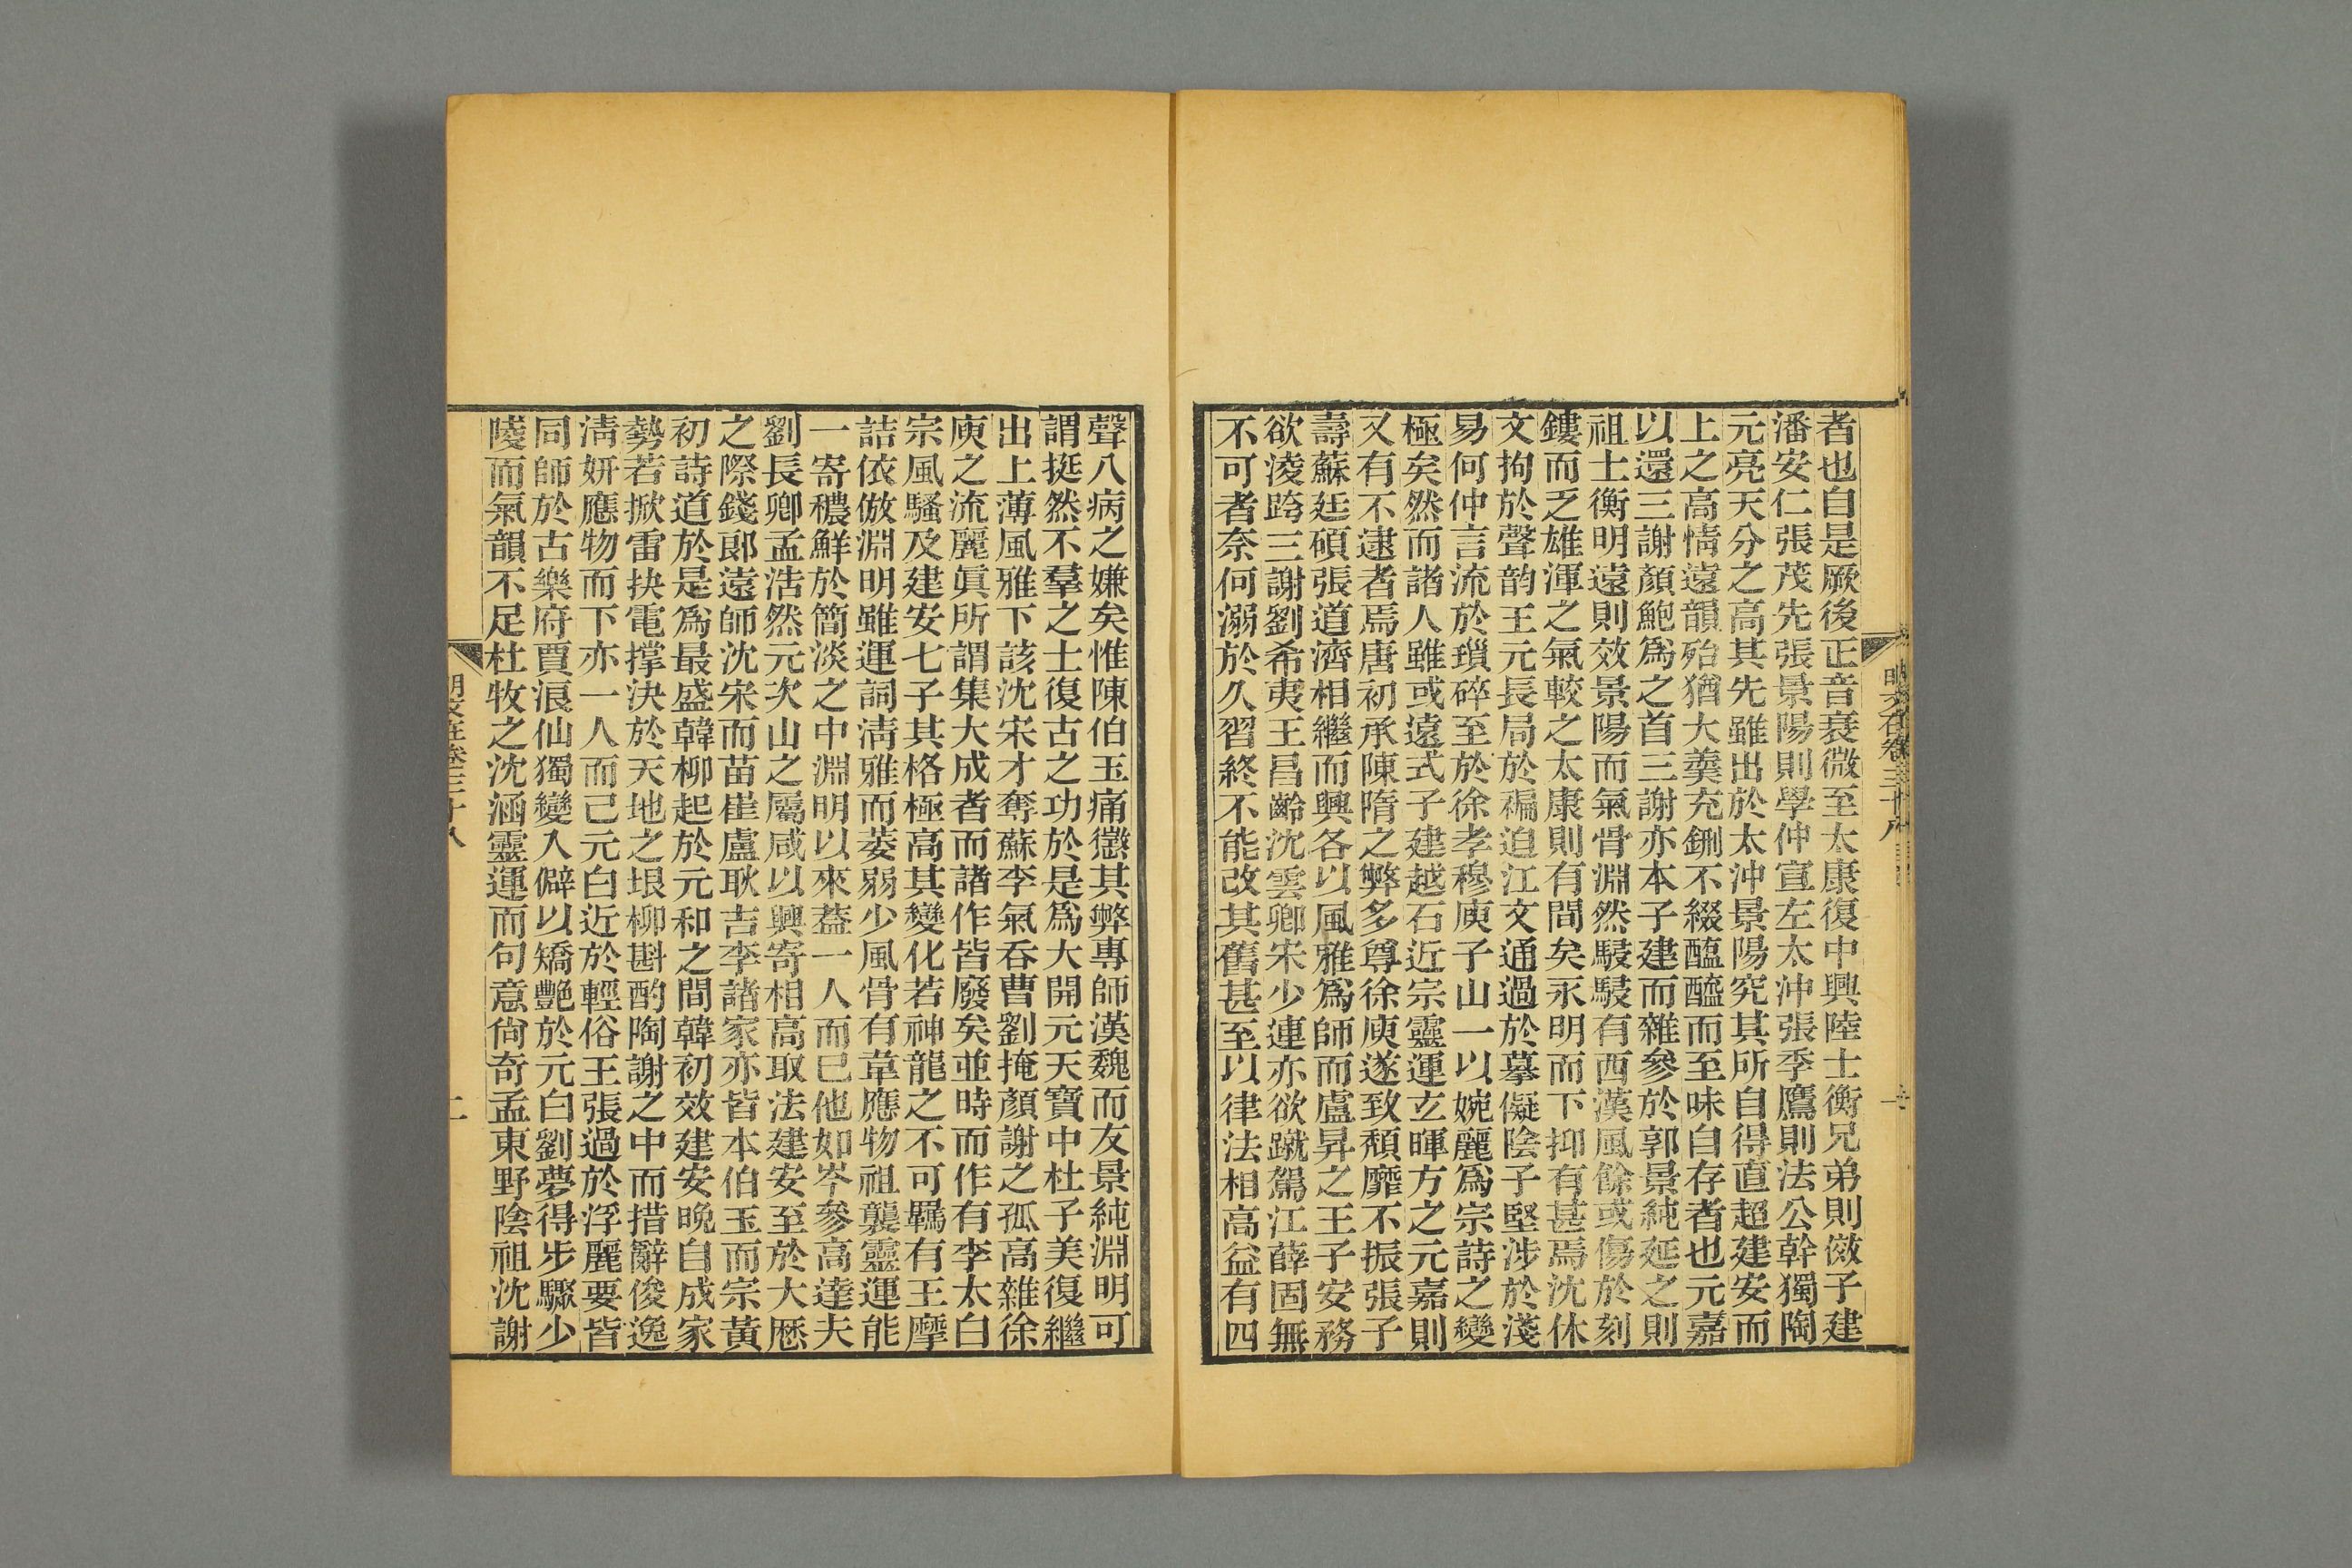 者也自是厥後正音衰微至太康復中興陸士衡兄弟則倣子建
潘安仁張茂先張景陽則學仲宣左太沖張季鷹則法公幹獨陶
元亮天分之高其先雖出於太沖景陽究其所自得直超建安而
上之高情遠韻殆猶大羹充鉶不綴醯醢而至味自存者也元嘉
以還三謝顏鮑爲之首三謝亦本子建而雜參於郭景純延之則
祖士衡明遠則效景陽而氣骨淵然駸駸有西漢風餘或傷於刻
鏤而乏雄渾之氣較之太康則有間矣永明而下抑有甚焉沈休
文拘於聲韵王元長局於褊迫江文通過於摹儗陰子堅涉於淺
易何仲言流於瑣碎至於徐孝穆庾子山一以婉麗爲宗詩之變
極矣然而諸人雖或遠式子建越石近宗靈運玄暉方之元嘉則
又有不逮者焉唐初承陳隋之弊多尊徐庾遂致頹靡不振張子
壽蘇廷碩張道濟相繼而興各以風雅爲師而盧昇之王子安務
欲淩跨三謝劉希夷王昌齡沈雲卿宋少連亦欲蹴駕江薛固無
不可者奈何溺於久習終不能改其舊甚至以律法相高益有四
聲八病之嫌矣惟陳伯玉痛懲其弊專師漢魏而友景純淵明可
謂挺然不羣之士復古之功於是爲大開元天寶中杜子美復繼
出上薄風雅下該沈宋才奪蘇李氣吞曹劉掩顏謝之孤高雜徐
庾之流麗眞所謂集大成者而諸作皆廢矣並時而作有李太白
宗風騷及建安七子其格極高其變化若神龍之不可羈有王摩
詰依倣淵明雖運詞淸雅而萎弱少風骨有韋應物祖襲靈運能
一寄穠鮮於簡淡之中淵明以來葢一人而已他如岑參高達夫
劉長卿孟浩然元次山之屬咸以興寄相高取法建安至於大厯
之際錢郞遠師沈宋而苗崔盧耿吉李諸家亦皆本伯玉而宗黃
初詩道於是爲最盛韓柳起於元和之間韓初效建安晚自成家
勢若掀雷抉電撑決於天地之垠柳斟酌陶謝之中而措辭俊逸
淸姸應物而下亦一人而已元白近於輕俗王張過於浮麗要皆
同師於古樂府賈浪仙獨變入僻以矯艷於元白劉夢得步驟少
陵而氣韻不足杜牧之沈涵靈運而句意尙奇孟東野陰祖沈謝
明文在卷三十八
二